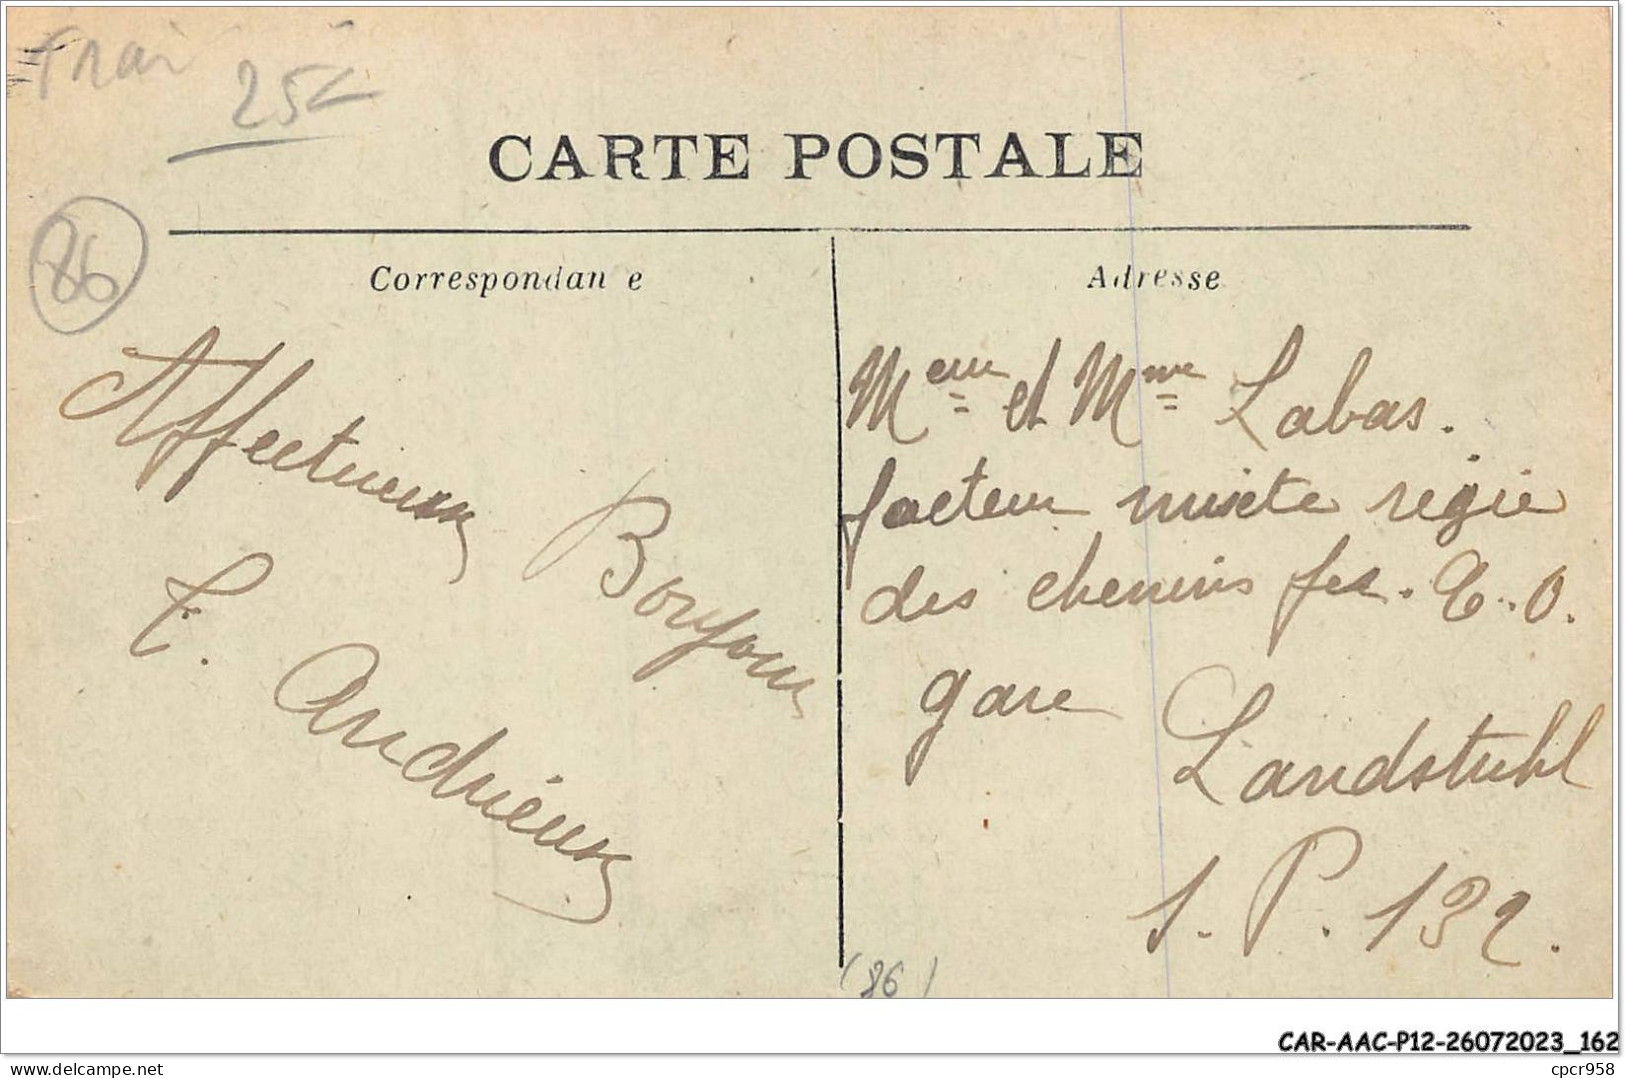 25
CARTE POSTALE
86
Correspondan e
Adresse
Affectueux Bonjour
E. Andrieux
Meur et Mme Labas.
facteur mixte régie
des chemins fer. T. O.
gare Landstuhl
S. P. 132.
(86)
CAR-AAC-P12-26072023_162
www.delcampe.net
cpcr958